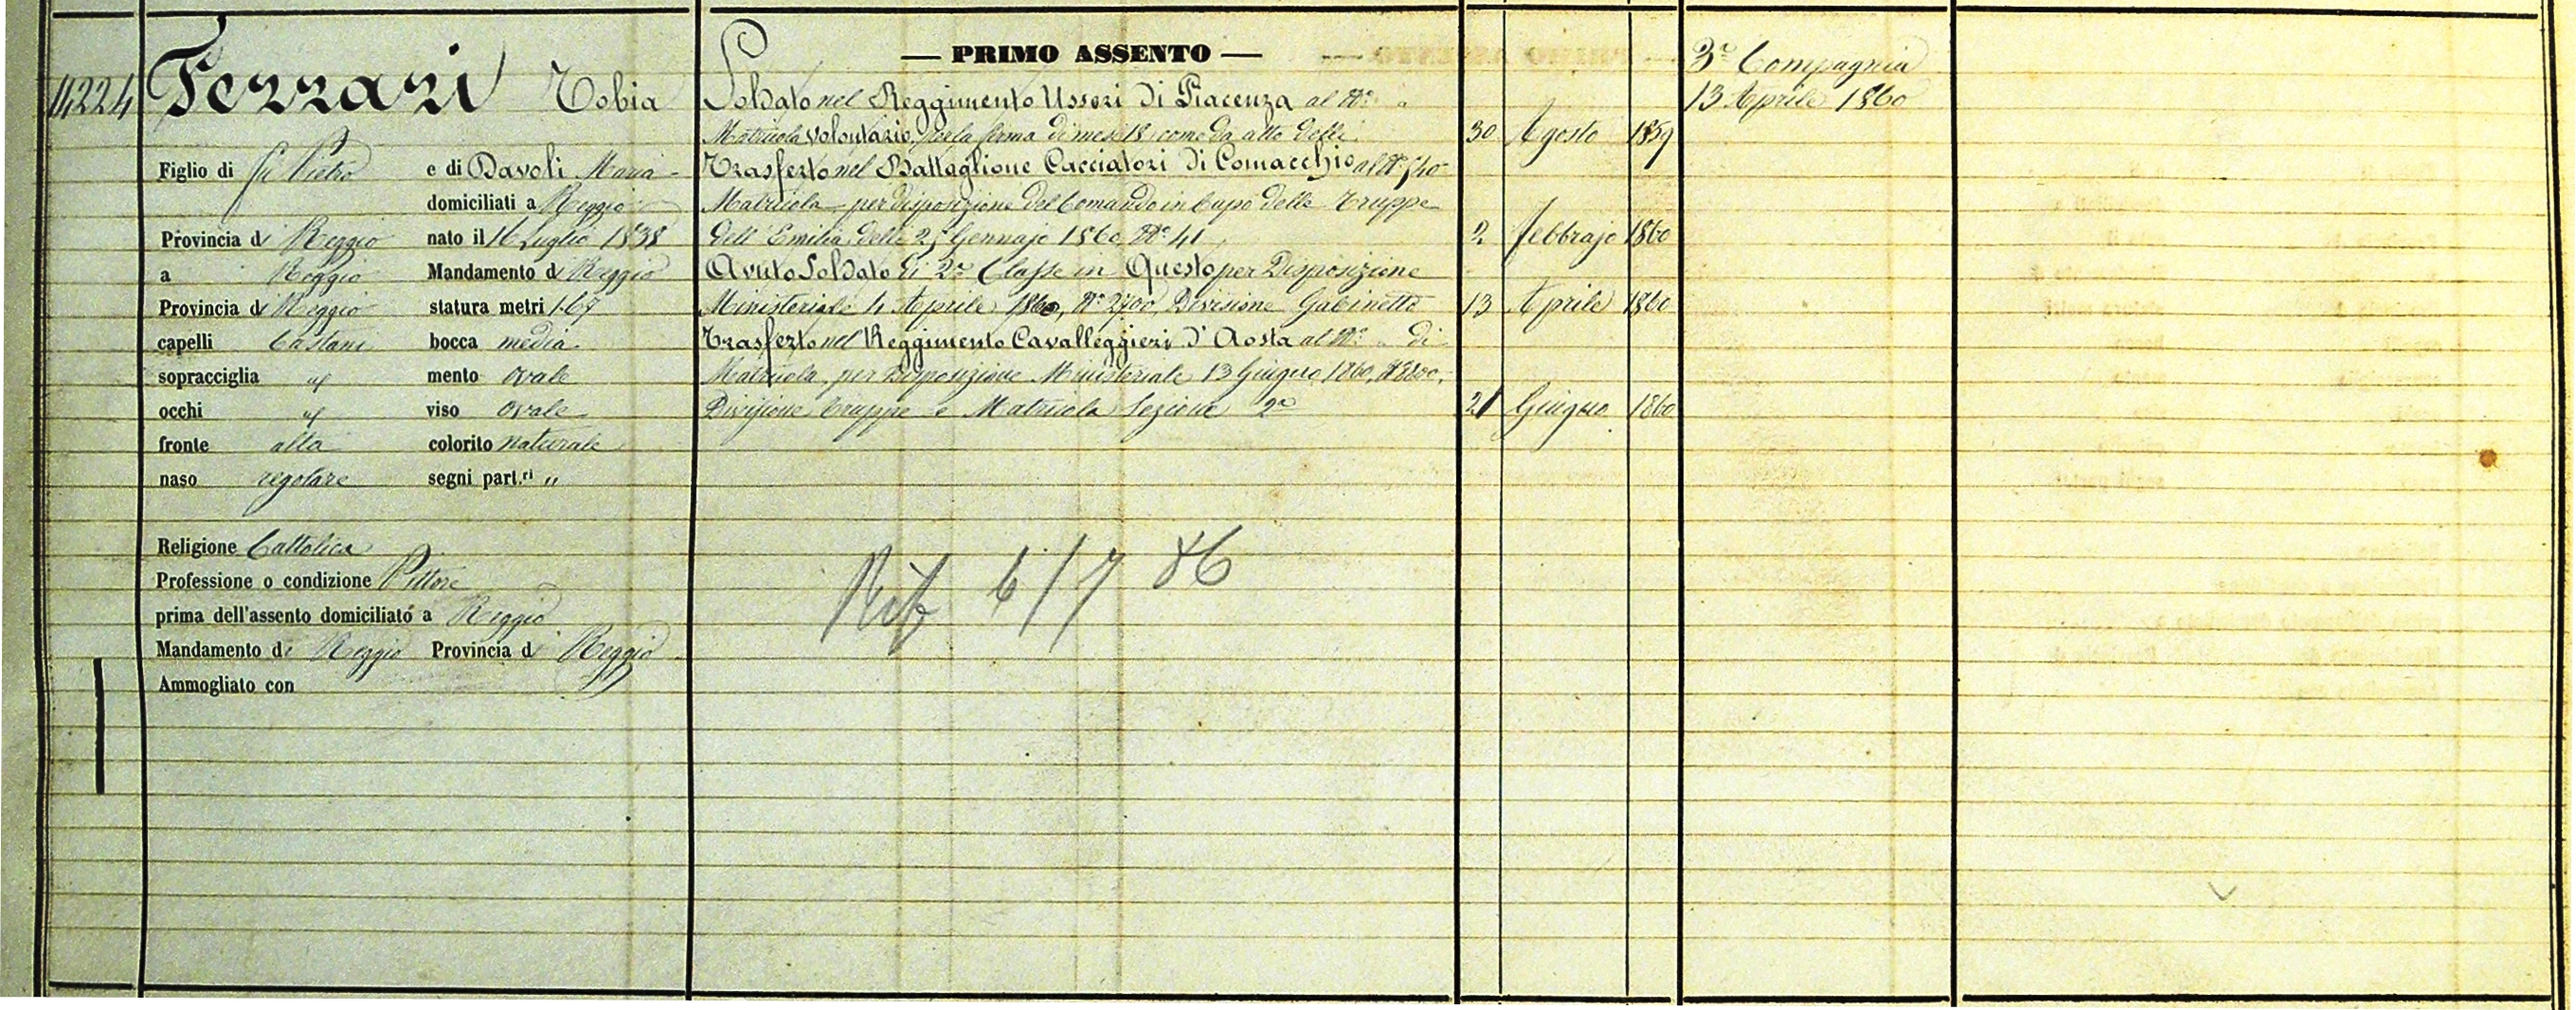 4224
Ferrari Tobia
Figlio di fu Pietro e di Davoli Maria
domiciliati a Reggio
Provincia di Reggio nato il 16 Luglio 1838
a Reggio Mandamento di Reggio
Provincia di Reggio statura metri 1.67
capelli Castani bocca media
sopracciglia id mento ovale
occhi id viso ovale
fronte alta colorito naturale
naso regolare segni part.ri "
Religione Cattolica
Professione o condizione Pittore
prima dell'assento domiciliato a Reggio
Mandamento di Reggio Provincia di Reggio
Ammogliato con
— PRIMO ASSENTO —
Soldato nel Reggimento Usseri di Piacenza al N°. "
Matricola volontario per la ferma di mesi 18, come da atto delli 30 Agosto 1859
Trasferto nel Battaglione Cacciatori di Comacchio al N°
Matricola per disposizione del Comando in Capo delle Truppe
dell'Emilia delli 25 Gennajo 1860, N° 41, 2 febbrajo 1860
Avuto Soldato di 2a Classe in Questo per Disposizione
Ministeriale 4 Aprile 1860, N° 2700, Divisione Gabinetto 13 Aprile 1860
Trasferto nel Reggimento Cavalleggieri d'Aosta al N°. " di
Matricola, per Disposizione Ministeriale 13 Giugno 1860,
Divisione Truppe e Matricola Sezione 2a 21 Giugno 1860
6/7 86
3a Compagnia
13 Aprile 1860